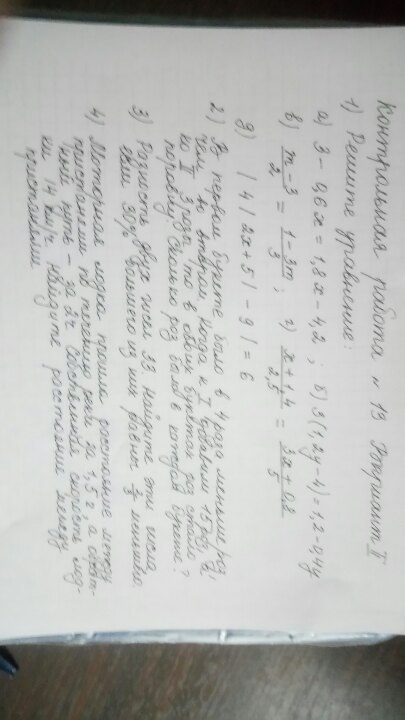 Контрольная работа №13 Вариант II
1) Решите уравнение:
а) 3 - 0,6x = 1,8x - 4,2 ; б) 3(1,2y - 4) = 1,2 - 0,4y
в) \frac{m-3}{2} = \frac{1-3m}{3} ; г) \frac{x+1,4}{2,5} = \frac{3x+0,8}{5}
д) |4|2x+5|-9| = 6
2) В первом букете было в 4 раза меньше роз,
чем во втором. Когда к I добавили 15 роз, а
ко II 3 розы, то в обоих букетах роз стало
поровну. Сколько роз было в каждом букете?
3) Разность двух чисел 33. Найдите эти числа,
если 30% большего из них равны \frac{2}{3} меньшего.
4) Моторная лодка прошла расстояние между
пристанями по течению реки за 1,5 ч, а обрат-
ный путь - за 2ч. Собственная скорость лод-
ки 14 км/ч. Найдите расстояние между
пристанями.